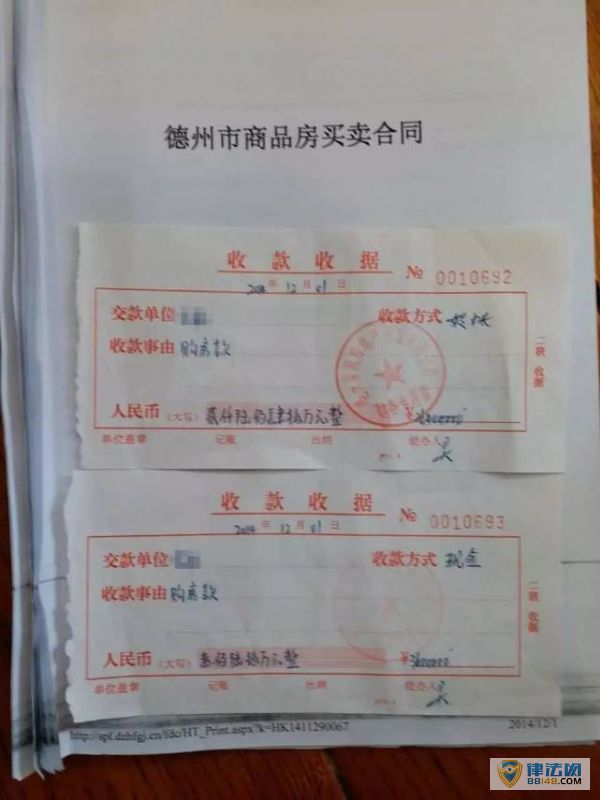 德州市商品房买卖合同
收款收据 № 0010692
年 12 月 01 日
交款单位 收款方式 转帐
收款事由 购房款
人民币（大写） 贰仟陆佰肆拾万元整 ¥
单位盖章 记账 出纳 经办人
二联 收据
收款收据 № 0010693
2014 年 12 月 01 日
交款单位 收款方式 现金
收款事由 购房款
人民币（大写） 叁佰陆拾万元整 ¥
单位盖章 记账 出纳 经办人
二联 收据
http://spf.dzhfgj.cn/fdc/HT_Print.aspx?k=HK1411290067 2014/12/1
律法网
88148.COM